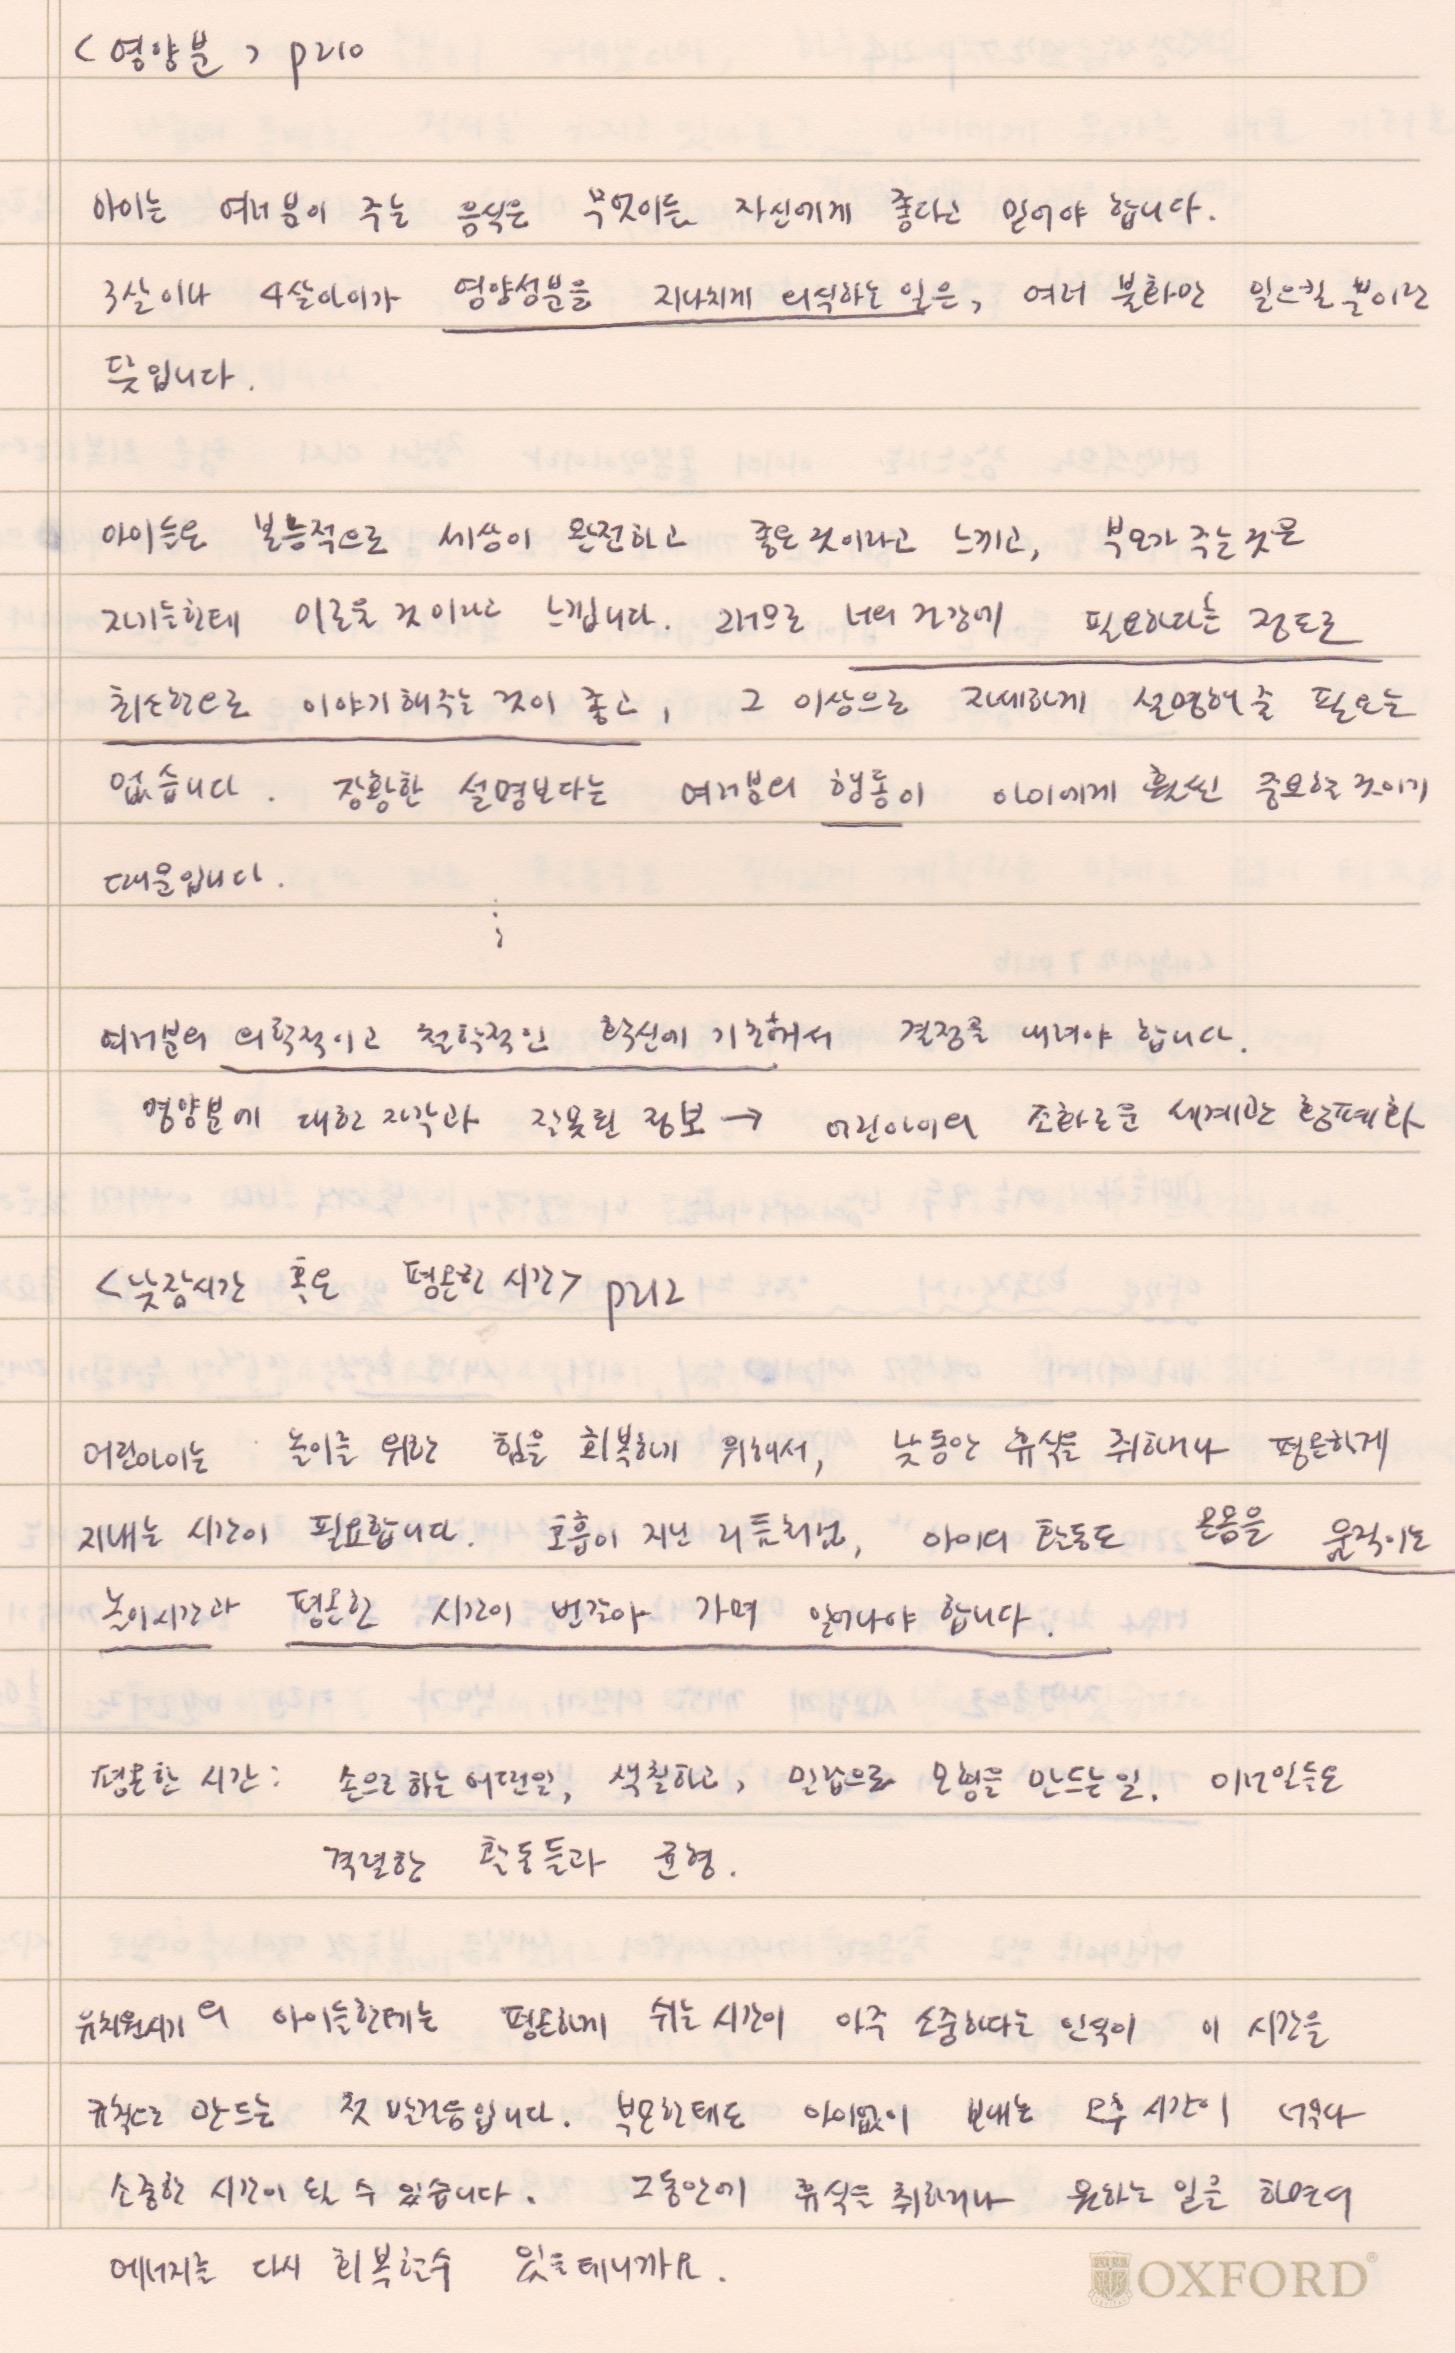 <영양분> p210
아이는 여러분이 주는 음식은 무엇이든 자신에게 좋다고 믿어야 합니다.
3살이나 4살아이가 영양성분을 지나치게 의식하는 일은, 여러 불화만 일으킬 뿐이란
뜻입니다.
아이들은 본능적으로 세상이 완전하고 좋은 것이라고 느끼고, 부모가 주는 것은
자기들한테 이로운 것이라고 느낍니다. 그러므로 너의 건강에 필요하다는 정도로
최소한으로 이야기해주는 것이 좋고, 그 이상으로 자세하게 설명해 줄 필요는
없습니다. 장황한 설명보다는 여러분의 행동이 아이에게 훨씬 중요한 것이기
때문입니다.
여러분의 의학적이고 철학적인 확신에 기초해서 결정을 내려야 합니다.
영양분에 대한 자각과 잘못된 정보 → 어린아이의 조화로운 세계관 황폐화
<낮잠시간 혹은 평온한 시간> p212
어린아이는 놀이를 위한 힘을 회복하기 위해서, 낮동안 휴식을 취하거나 평온하게
지내는 시간이 필요합니다. 호흡이 지닌 리듬처럼, 아이의 활동도 온몸을 움직이는
놀이시간과 평온한 시간이 번갈아 가며 일어나야 합니다.
평온한 시간: 손으로 하는 어떤일, 색칠하고, 밀랍으로 모형을 만드는 일. 이런일들은
격렬한 활동들과 균형.
유치원시기의 아이들한테는 평온하게 쉬는 시간이 아주 소중하다는 인식이 이 시간을
규칙으로 만드는 첫 발걸음입니다. 부모한테도 아이없이 보내는 오후 시간이 너무나
소중한 시간이 될 수 있습니다. 그동안에 휴식을 취하거나 원하는 일을 하면서
에너지를 다시 회복할수 있을테니까요.
OXFORD®